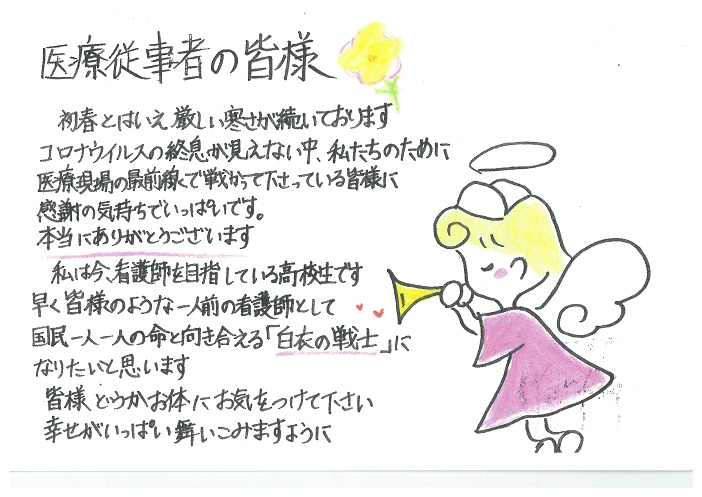 医療従事者の皆様
初春とはいえ厳しい寒さが続いております
コロナウイルスの終息が見えない中、私たちのために
医療現場の最前線で戦かって下さっている皆様に
感謝の気持ちでいっぱいです。
本当にありがとうございます
私は今、看護師を目指している高校生です
早く皆様のような一人前の看護師として
国民一人一人の命と向き合える「白衣の戦士」に
なりたいと思います
皆様どうかお体にお気をつけて下さい
幸せがいっぱい舞いこみますように